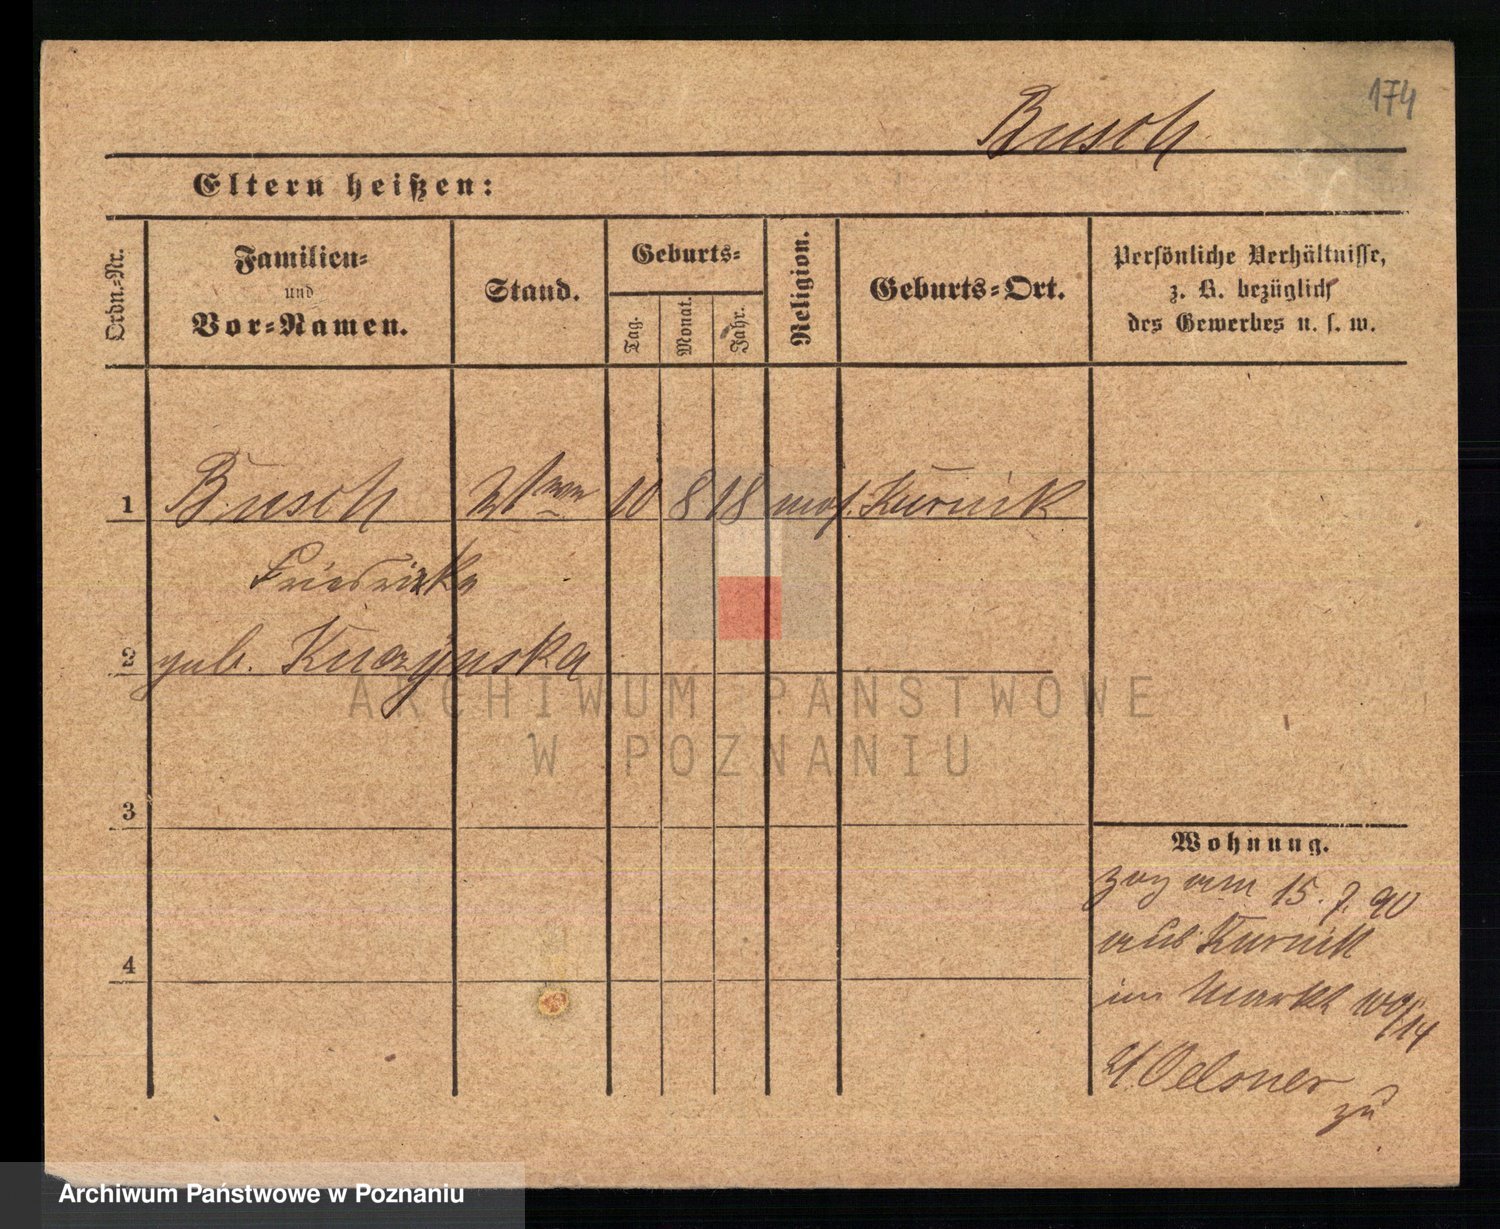 174
Busch
Eltern heißen:
Ordn.-Nr.
Familien-
und
Vor-Namen.
Stand.
Geburts-
Tag.
Monat.
Jahr.
Religion.
Geburts-Ort.
Persönliche Verhältnisse,
z. B. bezüglich
des Gewerbes u. s. w.
1 Busch Wwe 10 8 18 mos. Kurnik
Friedricka
2 geb. Kuczynska
3
4
Wohnung.
zog am 15. 7. 90
aus Kurnik
im Markt
Oelsner
zu
ARCHIWUM PAŃSTWOWE
W POZNANIU
Archiwum Państwowe w Poznaniu